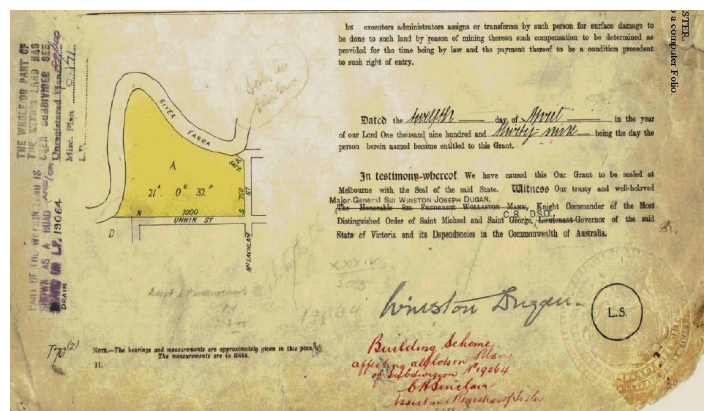 his executors administrators assigns or transferees by such person for surface damage to
be done to such land by reason of mining thereon such compensation to be determined as
provided for the time being by law and the payment thereof to be a condition precedent
to such right of entry.
STER.
o a computer Folio.
Dated the twelfth day of April in the year
of our Lord One thousand nine hundred and thirty nine being the day the
person herein named became entitled to this Grant.
In testimony whereof We have caused this Our Grant to be sealed at
Melbourne with the Seal of the said State. Witness Our trusty and well-beloved
Major-General SIR WINSTON JOSEPH DUGAN,
The Honorable SIR FREDERICK WOLLASTON MANN, Knight Commander of the Most
C.B. D.S.O.
Distinguished Order of Saint Michael and Saint George, Lieutenant-Governor of the said
State of Victoria and its Dependencies in the Commonwealth of Australia.
Winston Dugan
L.S.
THE WHOLE OR PART OF
THE WITHIN LAND HAS
BEEN SUBDIVIDED SEE
Unregistered Plan
Misc. Plan
L.P.
PART OF THE WITHIN LAND IS
SHOWN AS A ROAD AND/OR
DRAIN ON L.P. 19064
RIVER YARRA
A
21A. 0R. 32P.
N
2000
UNWIN ST
D
MCLACHLAN
ST
NOTE.—The bearings and measurements are approximately given in this plan.
The measurements are in links.
11.
Building Scheme
affecting all lots on Plan
of Subdivision No 19064
Sinclair
Assistant Registrar of Titles